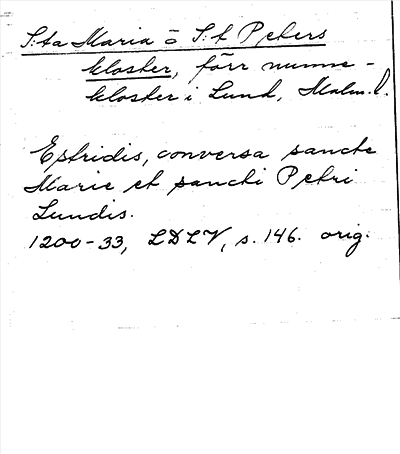 S:ta Maria o S:t Peters
kloster, förr nunne-
kloster i Lund, Malm. l.
Estridis, conversa sancte
Marie et sancti Petri
Lundis.
1200-33, LDLV, s. 146. orig.